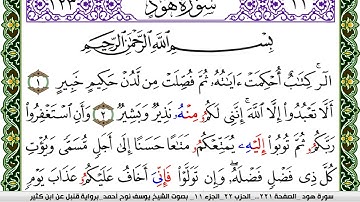 ١٢٣ سُورَةُ هُود ١١
بِسْمِ اللَّهِ الرَّحْمَٰنِ الرَّحِيمِ
الٓر ۚ كِتَٰبٌ أُحْكِمَتْ ءَايَٰتُهُۥ ثُمَّ فُصِّلَتْ مِن لَّدُنْ حَكِيمٍ خَبِيرٍ ١
أَلَّا تَعْبُدُوٓا۟ إِلَّا ٱللَّهَ ۚ إِنَّنِى لَكُمُۥ مِنْهُۥ نَذِيرٌ وَبَشِيرٌ ٢ وَأَنِ ٱسْتَغْفِرُوا۟
رَبَّكُمُۥ ثُمَّ تُوبُوٓا۟ إِلَيْهِۦ يُمَتِّعْكُمُۥ مَتَٰعًا حَسَنًا إِلَىٰٓ أَجَلٍ مُّسَمًّى وَيُؤْتِ
كُلَّ ذِى فَضْلٍ فَضْلَهُۥ ۖ وَإِن تَوَلَّوْا۟ فَإِنِّىَ أَخَافُ عَلَيْكُمُۥ عَذَابَ يَوْمٍ
سورة هود_ الصفحة ٢٢١_ الحزب ٢٢_ الجزء ١١_ بصوت الشيخ يوسف نوح أحمد_ برواية قنبل عن ابن كثير